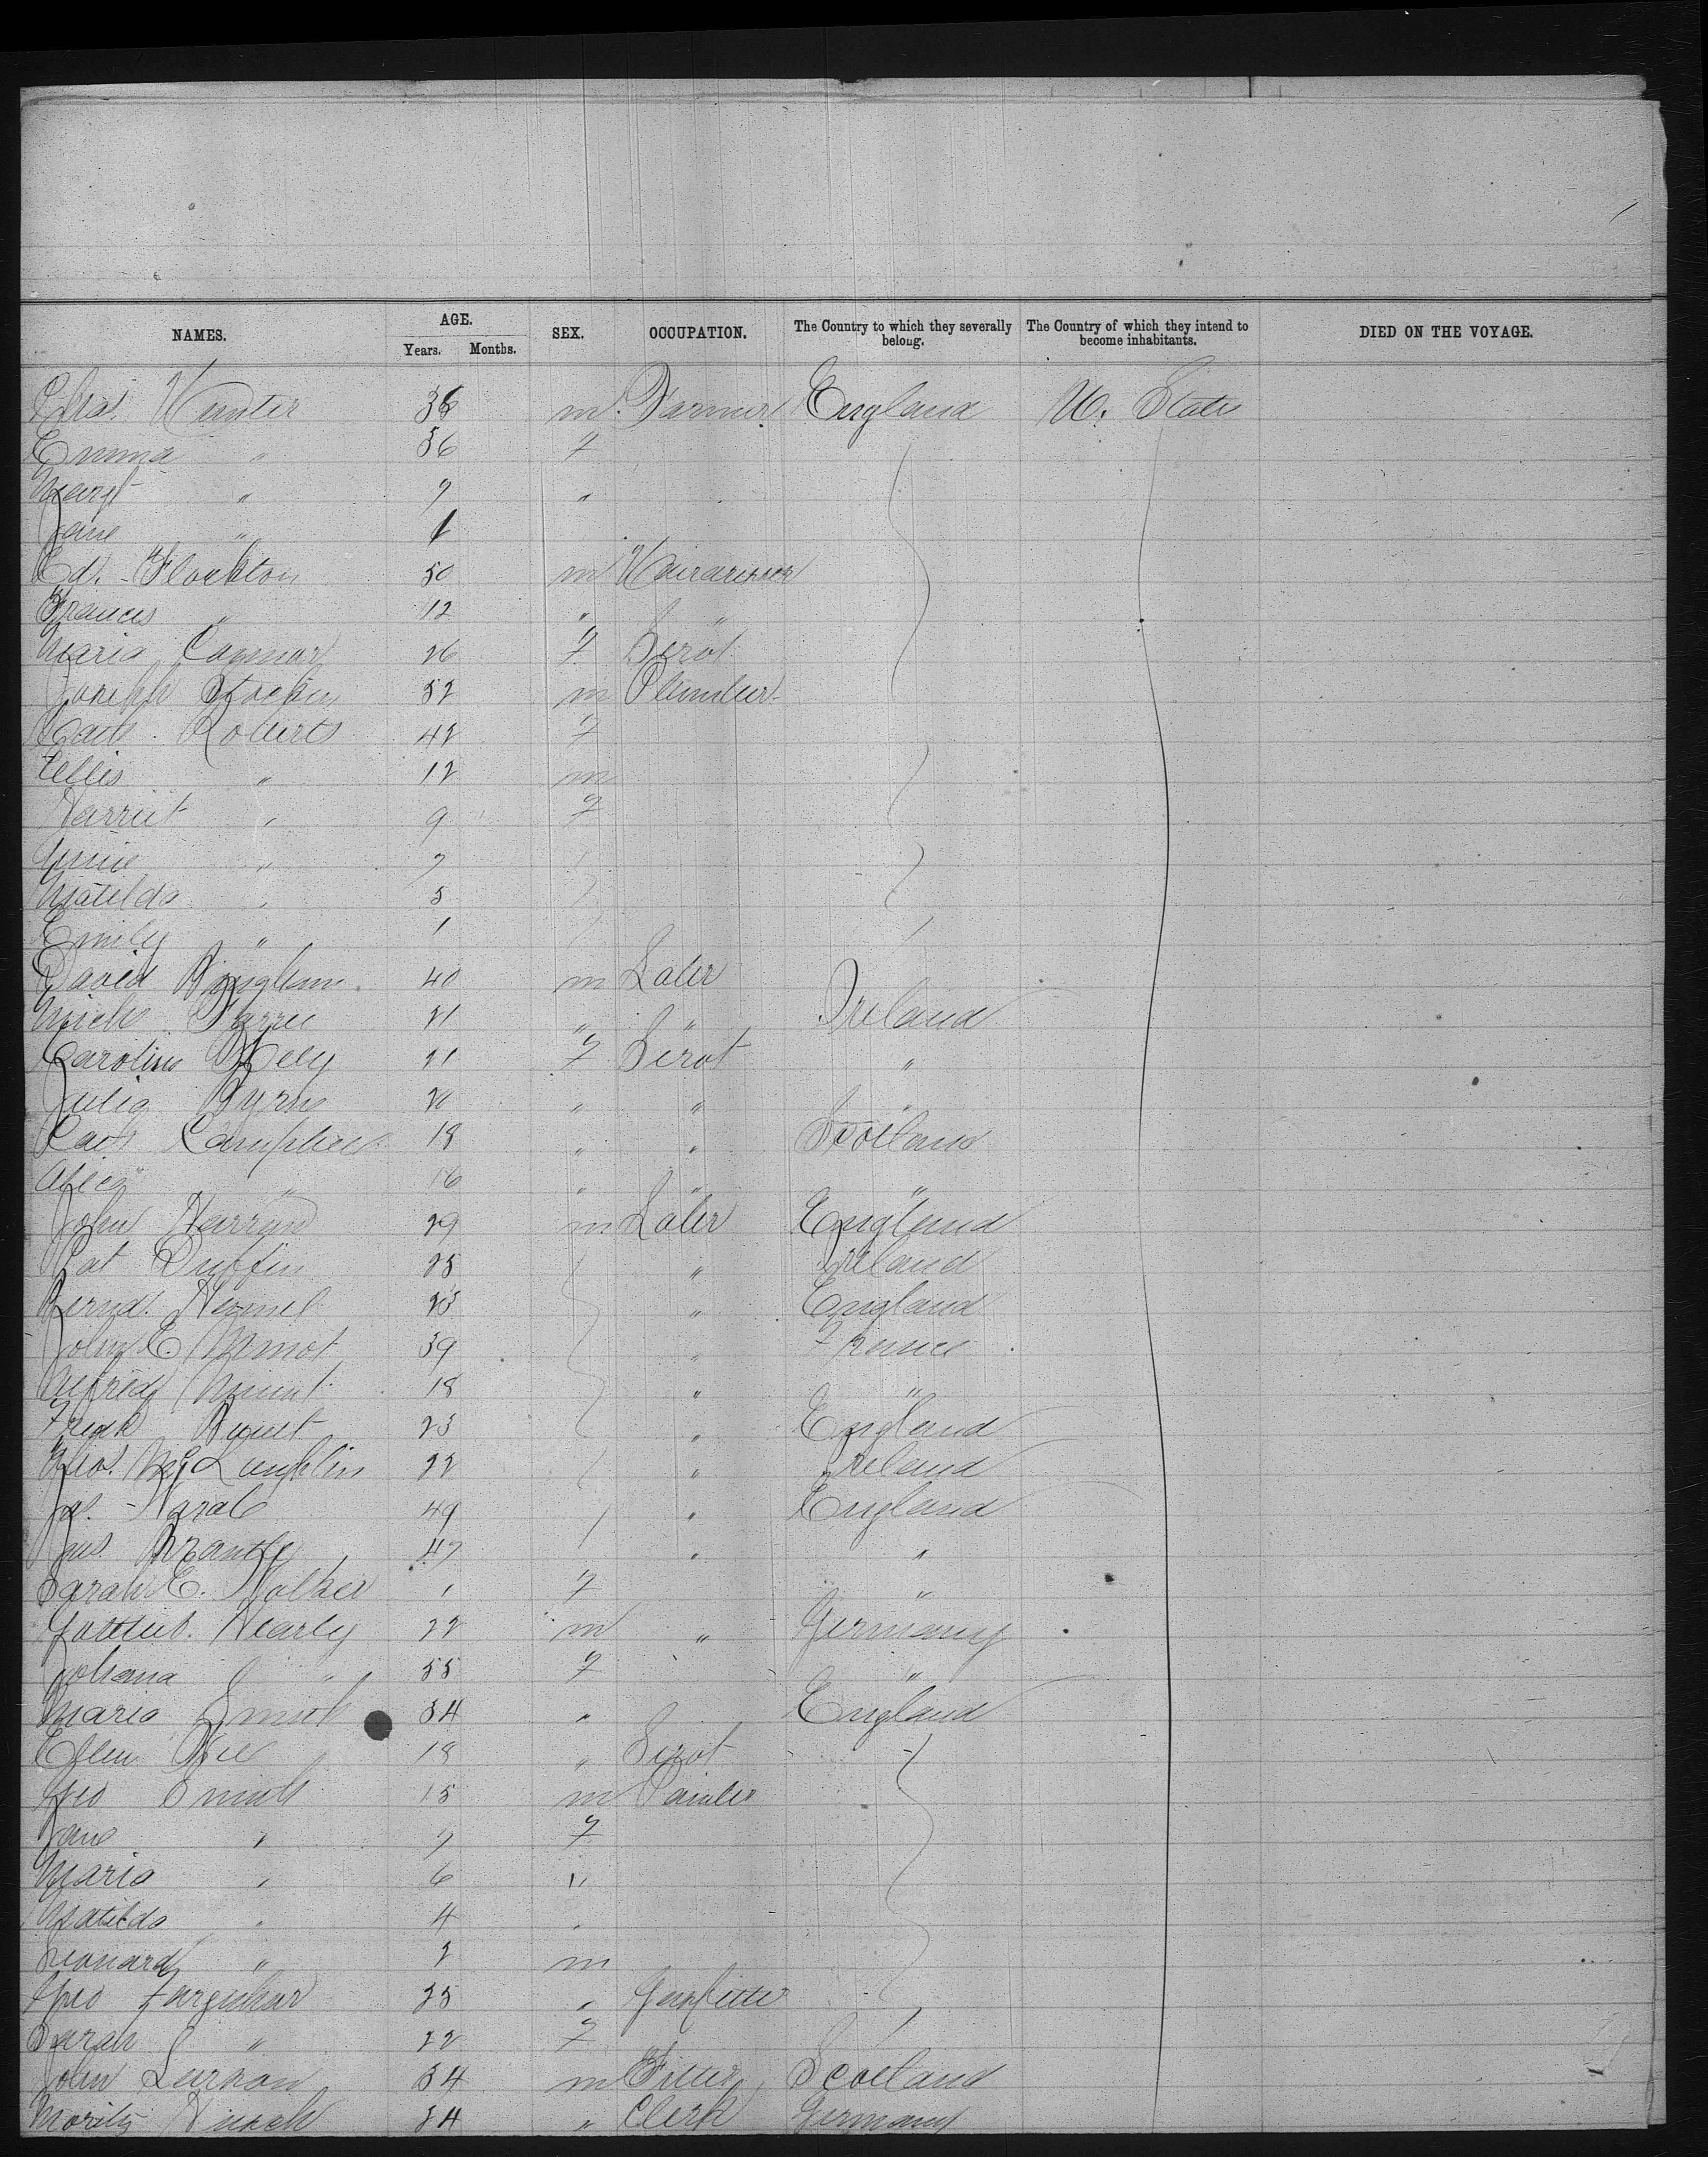 NAMES. AGE. SEX. OCCUPATION. The Country to which they severally belong. The Country of which they intend to become inhabitants. DIED ON THE VOYAGE.
Years. Months.
Chas. Hunter 36 m. Farmer England U. States
Emma " 36 F
Margt " 7 "
Jane " 1
Ed. Flockton 50 m Hairdresser
Frances " 12 " "
Maria 26 F Servt
Joseph 52 m Plumber
Cath. Roberts 42 F
Ellis " 12 m
Harriet " 9 F
Annie " 7
Matilda " 5
Emily " 1
David Bingham 40 m Labr
Mich 21 " " Ireland
Caroline 21 F Servt "
Julia Byrne 20 " " "
Cath Campbell 18 " " Scotland
Alice " 16 " " "
John 29 m. Labr England
Pat Duffin 25 " Ireland
Bernd. 23 " England
John E. 39 " France
Alfred 18 " "
Fredk 23 " England
Geo. McLaughlin 22 " Ireland
49 " England
Jas. 47 " "
Sarah E. Walker 1 F "
Gottlieb 22 m " Germany
Johana " 55 F "
Maria Smith 34 " England
Ellen 18 " Servt
Geo Smith 15 m Painter
Jane " 7 F
Maria " 6 "
Matilda " 4 "
Leonard " 2 m
Geo Farquhar 25 " Gasfitter
Sarah " 22 F
John 34 m Fitter Scotland
Moritz 24 " Clerk Germany